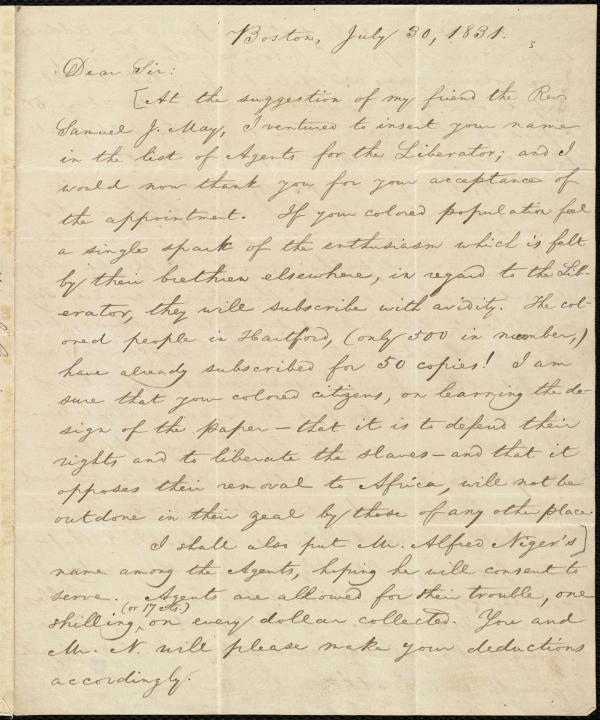 Boston, July 30, 1831.
Dear Sir:
[At the suggestion of my friend the Rev
Samuel J. May, I ventured to insert your name
in the list of Agents for the Liberator; and I
would now thank you for your acceptance of
the appointment. If your colored population feel
a single spark of the enthusiasm which is felt
by their brethren elsewhere, in regard to the Lib-
erator, they will subscribe with avidity. The col-
ored people in Hartford, (only 500 in number,)
have already subscribed for 50 copies! I am
sure that your colored citizens, on learning the de-
sign of the paper—that it is to defend their
rights and to liberate the slaves—and that it
opposes their removal to Africa, will not be
outdone in their zeal by those of any other place.
I shall also put Mr. Alfred Niger's]
name among the Agents, hoping he will consent to
serve. Agents are allowed for their trouble, one
(or 17 cts.)
shilling on every dollar collected. You and
Mr. N. will please make your deductions
accordingly.